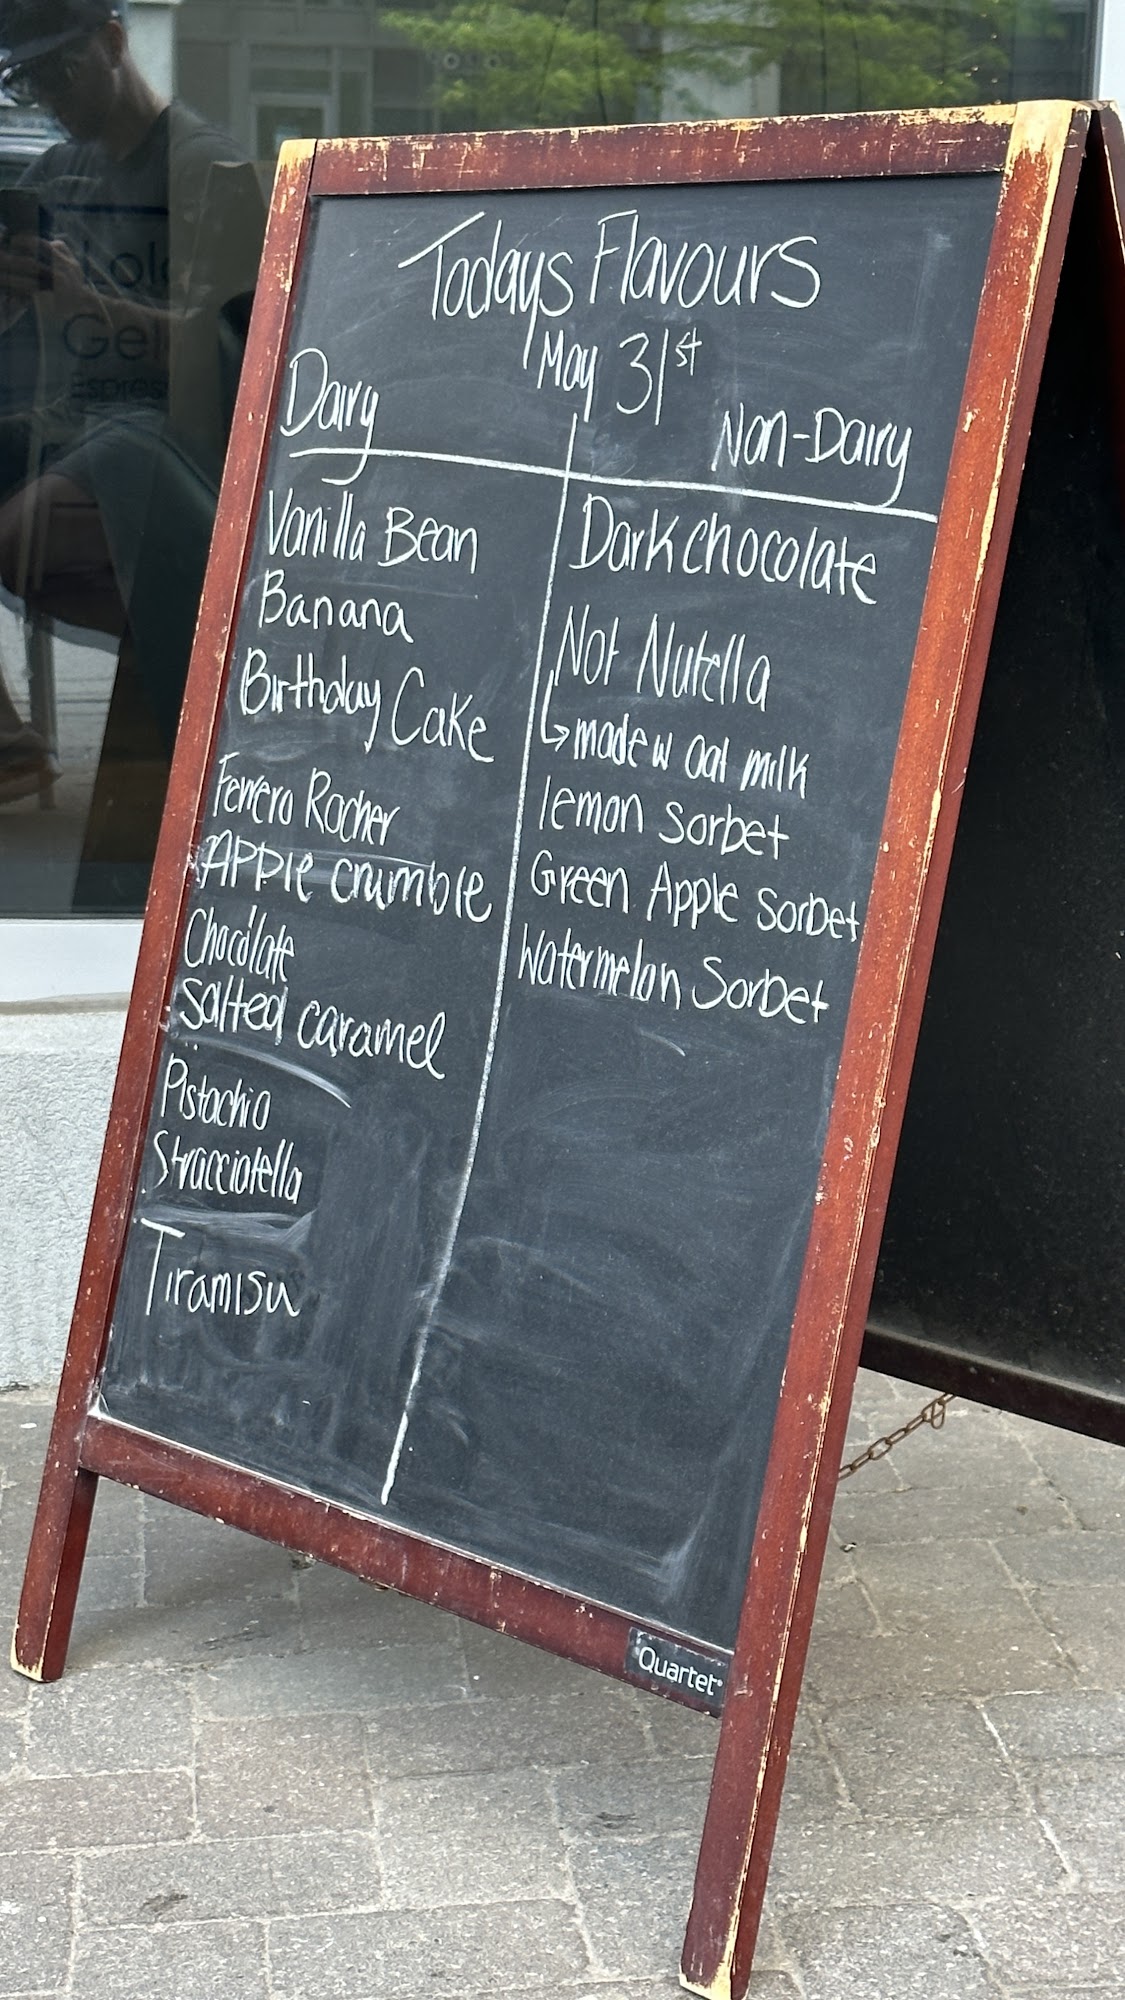 Todays Flavours
May 31st
Dairy
Vanilla Bean
Banana
Birthday Cake
Ferrero Rocher
Apple crumble
Chocolate
Salted caramel
Pistachio
Stracciatella
Tiramisu
Non-Dairy
Dark chocolate
Not Nutella
↳ made w oat milk
lemon sorbet
Green Apple sorbet
Watermelon Sorbet
Quartet
Gel
Espres